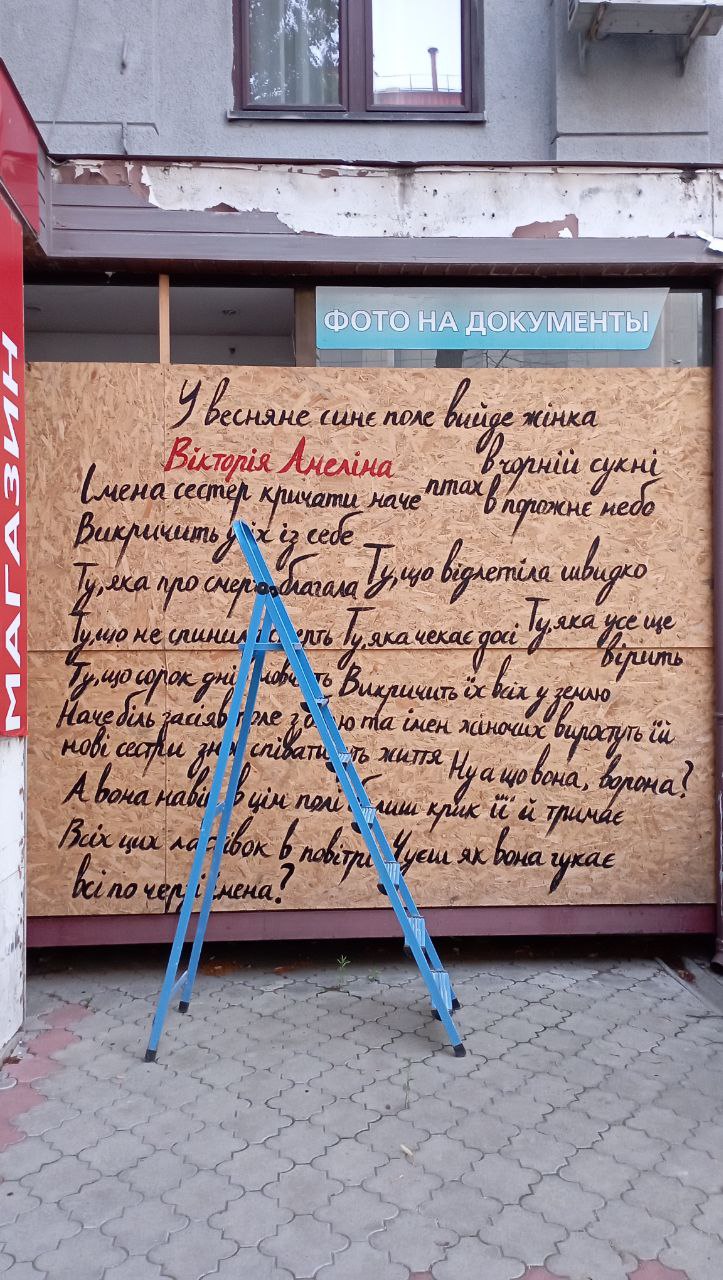 ФОТО НА ДОКУМЕНТЫ
МАГАЗИН
У весняне синє поле вийде жінка
Вікторія Амеліна в чорній сукні
Імена сестер кричати наче птах в порожнє небо
Викричить усіх із себе
Ту, яка про смерть благала Ту, що відлетіла швидко
Ту, що не спинила смерть Ту, яка чекає досі Ту, яка усе ще
вірить
Ту, що сорок днів мовчить Викричить їх всіх у землю
Наче біль засіяв поле З болю та імен жіночих виростуть їй
нові сестри знов співатимуть життя Ну а що вона, ворона?
А вона навіки в цім полі бо лиш крик її й тримає
Всіх цих ластівок в повітрі Чуєш як вона гукає
всі по черзі імена?